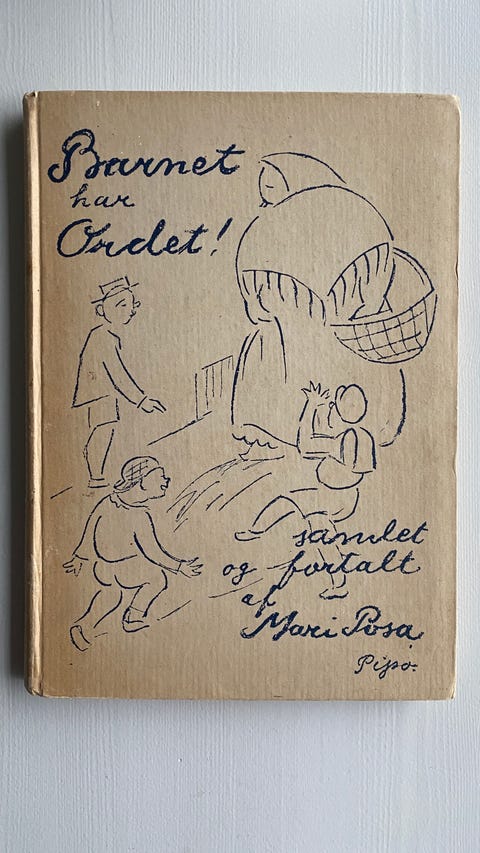 Barnet
har
Ordet!
samlet
og fortalt
af
Mari Posa
Pipo.